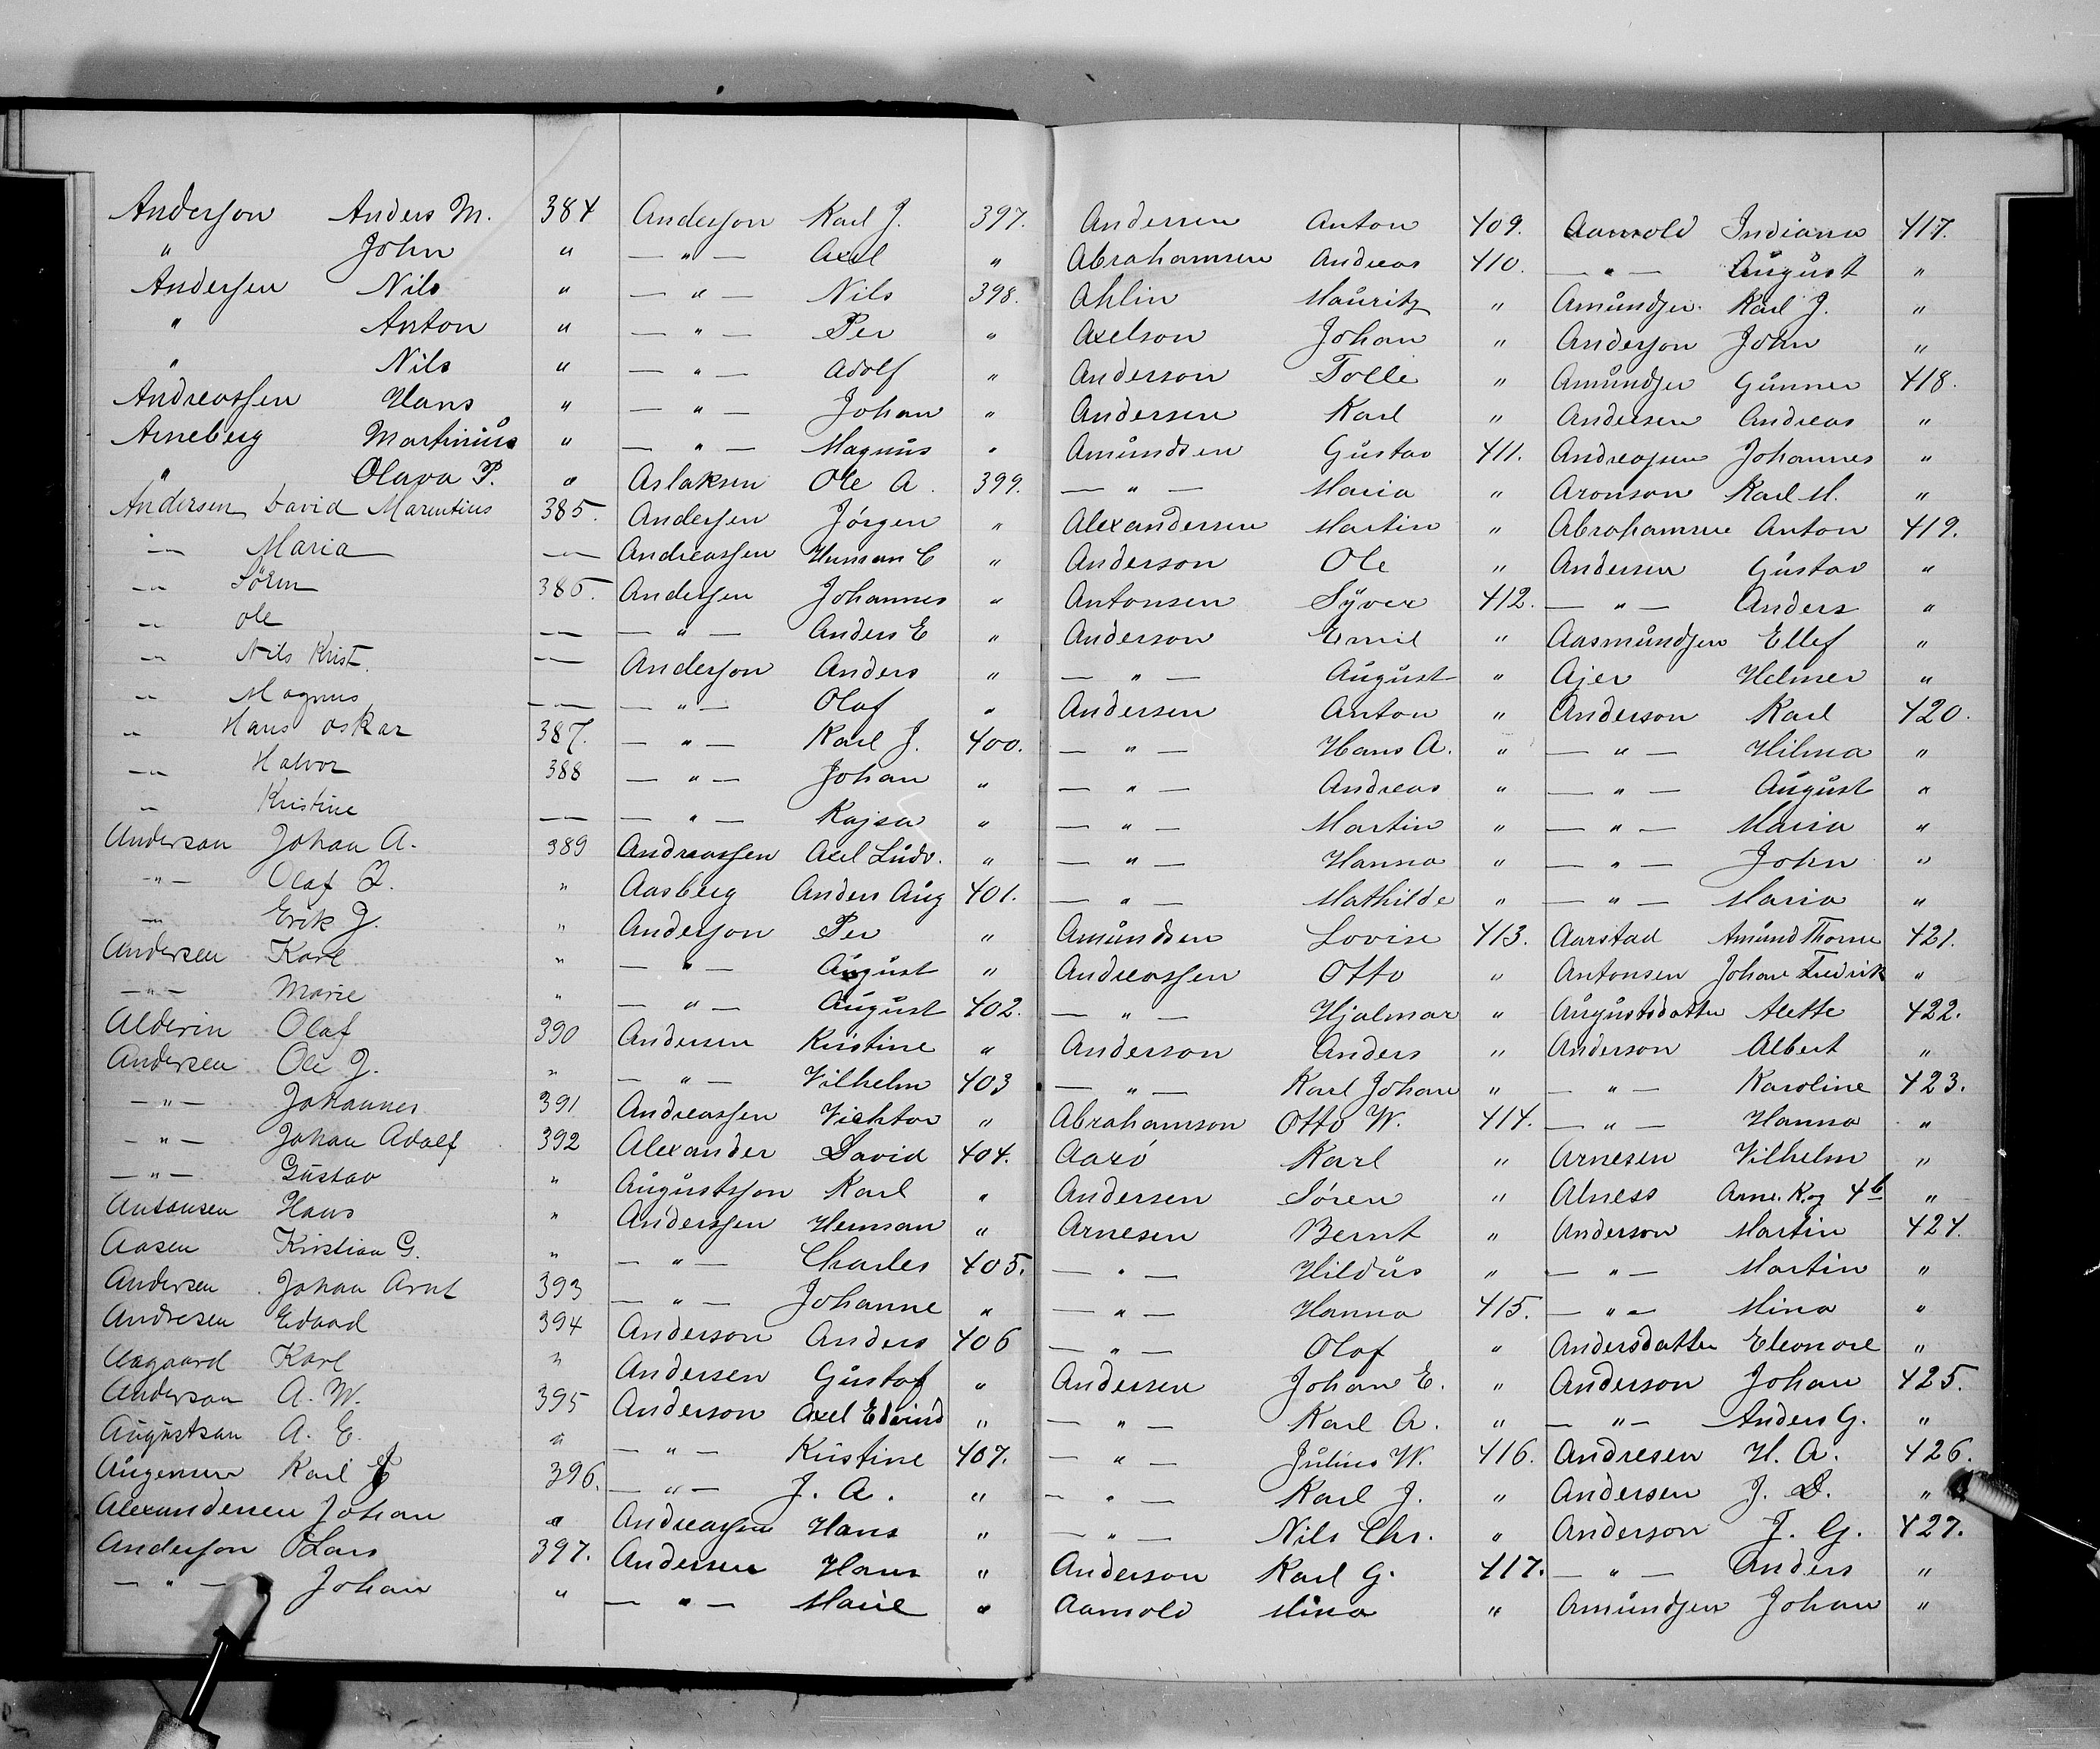 Anderson Anders M. 384
" John "
Andersen Nils "
" Anton "
" Nils "
Andreassen Hans "
Arneberg Martinius "
" Olava P. "
Andersen David Marentius 385.
— " — Maria — " —
— " — Sören 386.
— " — Ole — " —
— " — Nils Krist. — " —
— " — Magnus — " —
— " — Hans Oskar 387.
— " — Halvor 388
— " — Kristine — " —
Anderson Johan A. 389
— " — Olaf "
— " — Erik J. "
Andersen Karl "
— " — Marie "
Alderin Olaf 390
Andersen Ole J. "
— " — Johannes 391
— " — Johan Adolf 392
— " — Gustav "
Antonsen Hans "
Aasen Kristian G. "
Andersen Johan Arnt 393
Andresen Edvard 394
Aagaard Karl "
Anderson A. W. 395
Augustson A. E. "
Augensen Karl 396.
Alexandersen Johan "
Anderson Lars 397.
— " — Johan "
Anderson Karl J. 397.
— " — Axel "
— " — Nils 398.
— " — Per "
— " — Adolf "
— " — Johan "
— " — Magnus "
Aslaksen Ole A. 399.
Andersen Jörgen "
Andreassen Herman E "
Andersen Johannes "
— " — Anders E "
Anderson Anders "
— " — Olaf "
— " — Karl J. 400.
— " — Johan "
— " — Kajsa "
Andreassen Axel Ludv. "
Aasberg Anders Aug 401.
Anderson Per "
— " — August "
— " — August 402.
Andersen Kristine "
— " — Vilhelm 403
Andreassen Vicktor "
Alexander David 404.
Augustsson Karl "
Anderssen Herman "
— " — Charles 405.
— " — Johanne "
Anderson Anders 406
Andersen Gustaf "
Anderson Axel Edvind "
— " — Kristine 407.
— " — J. A. "
Andreassen Hans "
Andersen Hans "
— " — Marie "
Andersen Anton 409.
Abrahamsen Andreas 410.
Ahlin Mauritz "
Axelson Johan "
Anderson Tolle "
Andersen Karl "
Amundsen Gustav 411.
— " — Maria "
Alexandersen Martin "
Anderson Ole "
Antonsen Syver 412.
Anderson Emil "
— " — August "
Andersen Anton "
— " — Hans A. "
— " — Andreas "
— " — Martin "
— " — Hanna "
— " — Mathilde "
Amundsen Lovise 413.
Andreassen Otto "
— " — Hjalmar "
Anderson Anders "
— " — Karl Johan "
Abrahamson Otto W. 414.
Aarö Karl "
Andersen Sören "
Arnesen Bernt "
— " — Hildus "
— " — Hanna 415.
— " — Olaf "
Andersen Johan E. "
— " — Karl A. "
— " — Julius W. 416.
— " — Karl J. "
— " — Nils Chr. "
Anderson Karl G. 417.
Aamold Mina "
Aamold Indiana 417.
— " — August "
Amundsen Karl J. "
Anderson John "
Amundsen Gunner 418.
Andersen Andreas "
Andreassen Johannes "
Aronson Karl M. "
Abrahamsen Anton 419.
Andersen Gustav "
— " — Anders "
Aasmundsen Ellef "
Ajer Helmer "
Anderson Karl 420.
— " — Hilma "
— " — August "
— " — Maria "
— " — John "
— " — Maria "
Aarstad Amund Thorne 421.
Antonsen Johan Fredrik "
Augustsdatter Alette 422.
Anderson Albert "
— " — Karoline 423.
— " — Hanna "
Arnesen Vilhelm "
Alness Arne K. og 4 b "
Anderson Martin 424.
— " — Martin "
— " — Mina "
Andersdatter Eleonore "
Anderson Johan 425.
— " — Anders G. "
Andresen H. A. 426.
Andersen J. D. "
Anderson J. G. 427.
— " — Anders "
Amundsen Johan "